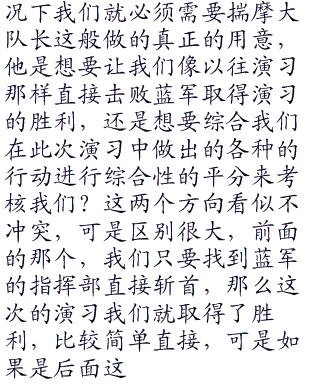 况下我们就必须需要揣摩大
队长这般做的真正的用意，
他是想要让我们像以往演习
那样直接击败蓝军取得演习
的胜利，还是想要综合我们
在此次演习中做出的各种的
行动进行综合性的平分来考
核我们？这两个方向看似不
冲突，可是区别很大，前面
的那个，我们只要找到蓝军
的指挥部直接斩首，那么这
次的演习我们就取得了胜
利，比较简单直接，可是如
果是后面这